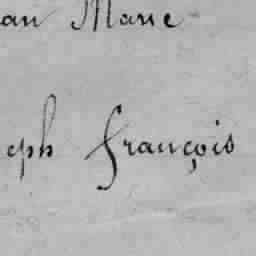 an Marie
eph françois